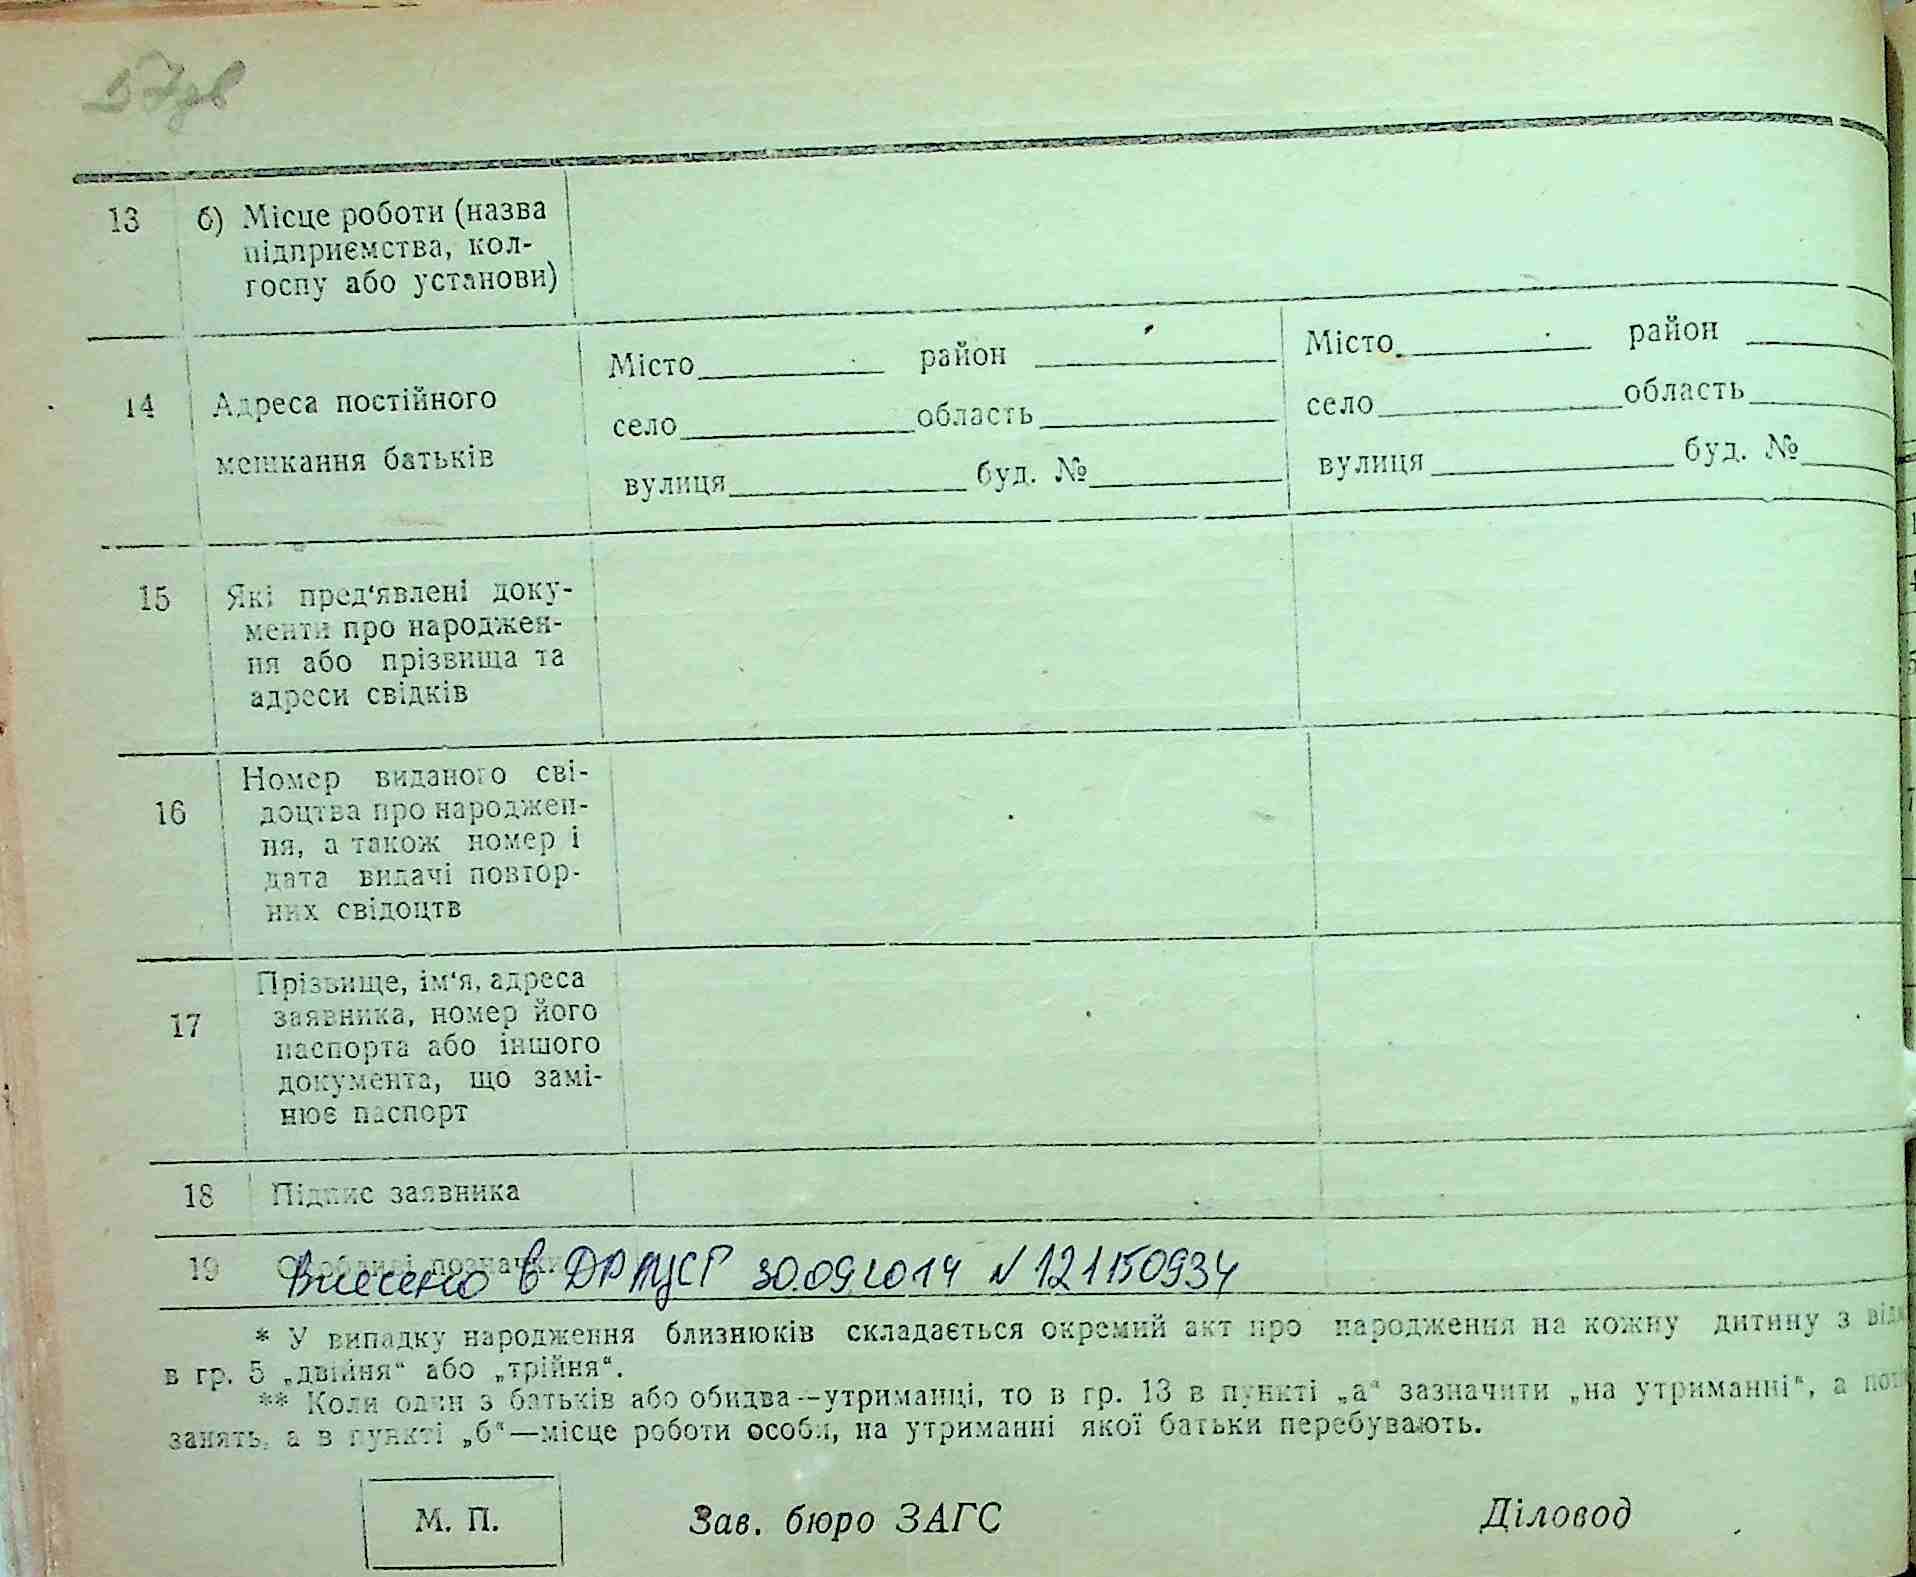 13 б) Місце роботи (назва
підприємства, кол-
госпу або установи)
14 Адреса постійного
мешкання батьків
Місто район
село область
вулиця буд. №
Місто район
село область
вулиця буд. №
15 Які пред‘явлені доку-
менти про народжен-
ня або прізвища та
адреси свідків
16 Номер виданого сві-
доцтва про народжен-
ня, а також номер і
дата видачі повтор-
них свідоцтв
17 Прізвище, ім‘я, адреса
заявника, номер його
паспорта або іншого
документа, що замі-
нює паспорт
18 Підпис заявника
19 Особливі позначки
Внесено в ДРАЦСГ 30.09.2014 N 121150934
* У випадку народження близнюків складається окремий акт про народження на кожну дитину з
в гр. 5 „двійня“ або „трійня“.
** Коли один з батьків або обидва—утриманці, то в гр. 13 в пункті „а“ зазначити „на утриманні“, а
занять, а в пункті „б“—місце роботи особи, на утриманні якої батьки перебувають.
М. П. Зав. бюро ЗАГС Діловод